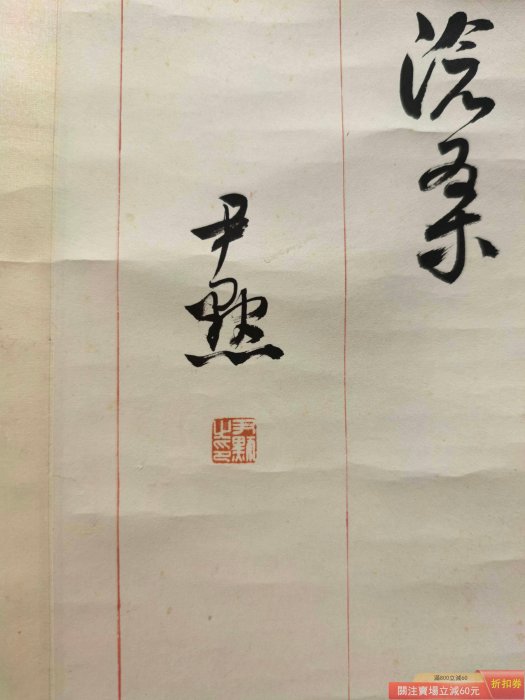 沧桑
尹默
尹默之印
滿800立減60
關注賣場立減60元
折扣券